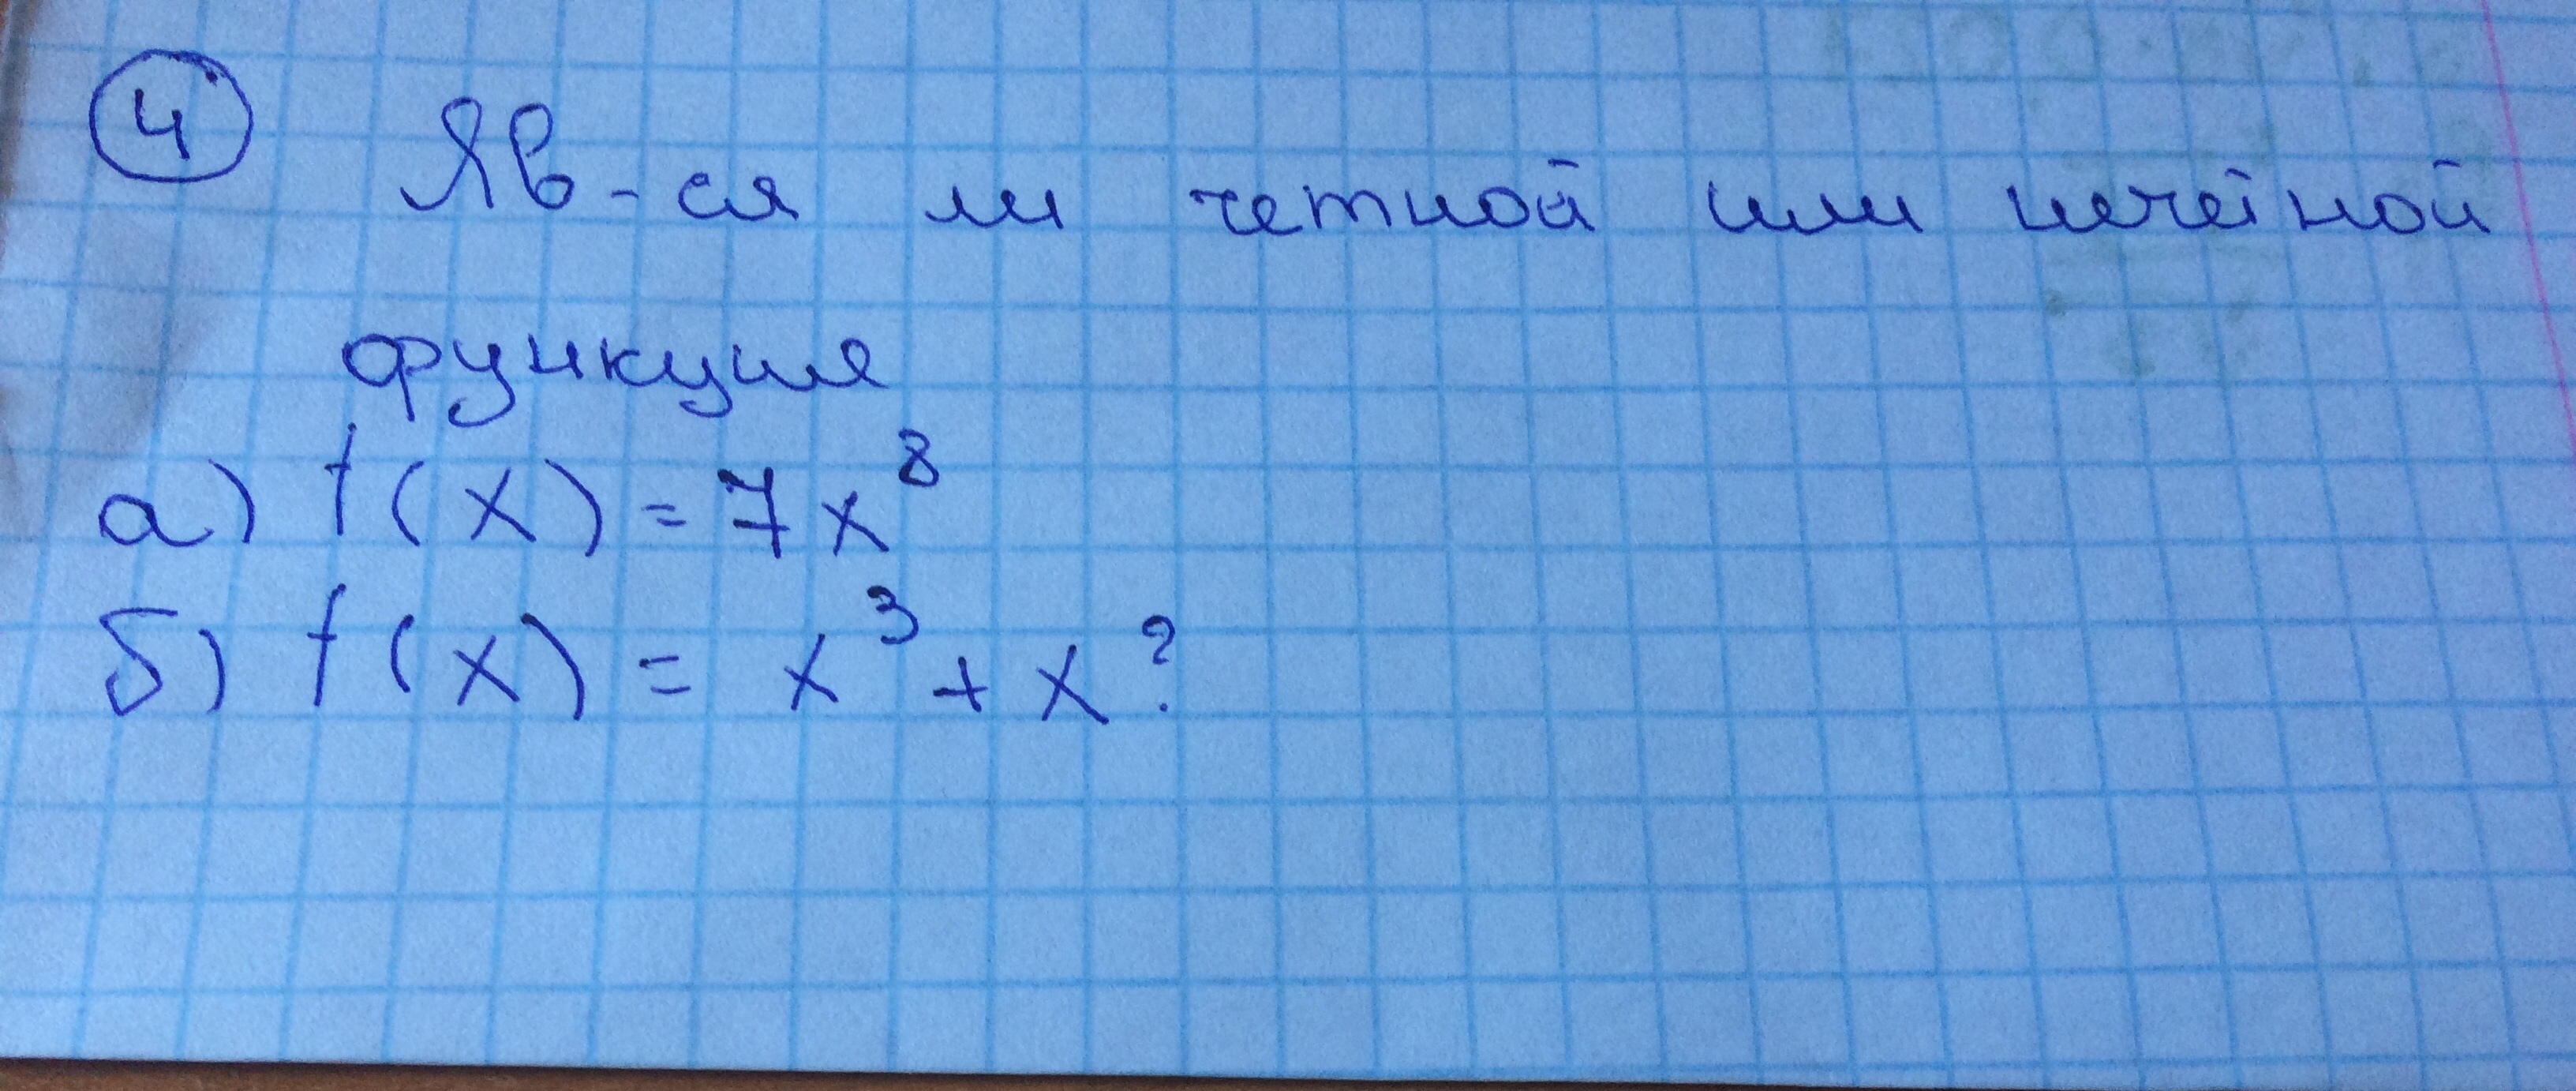 4 Яв-ся ли четной или нечетной
функция
а) f(x) = 7x⁸
б) f(x) = x³ + x?